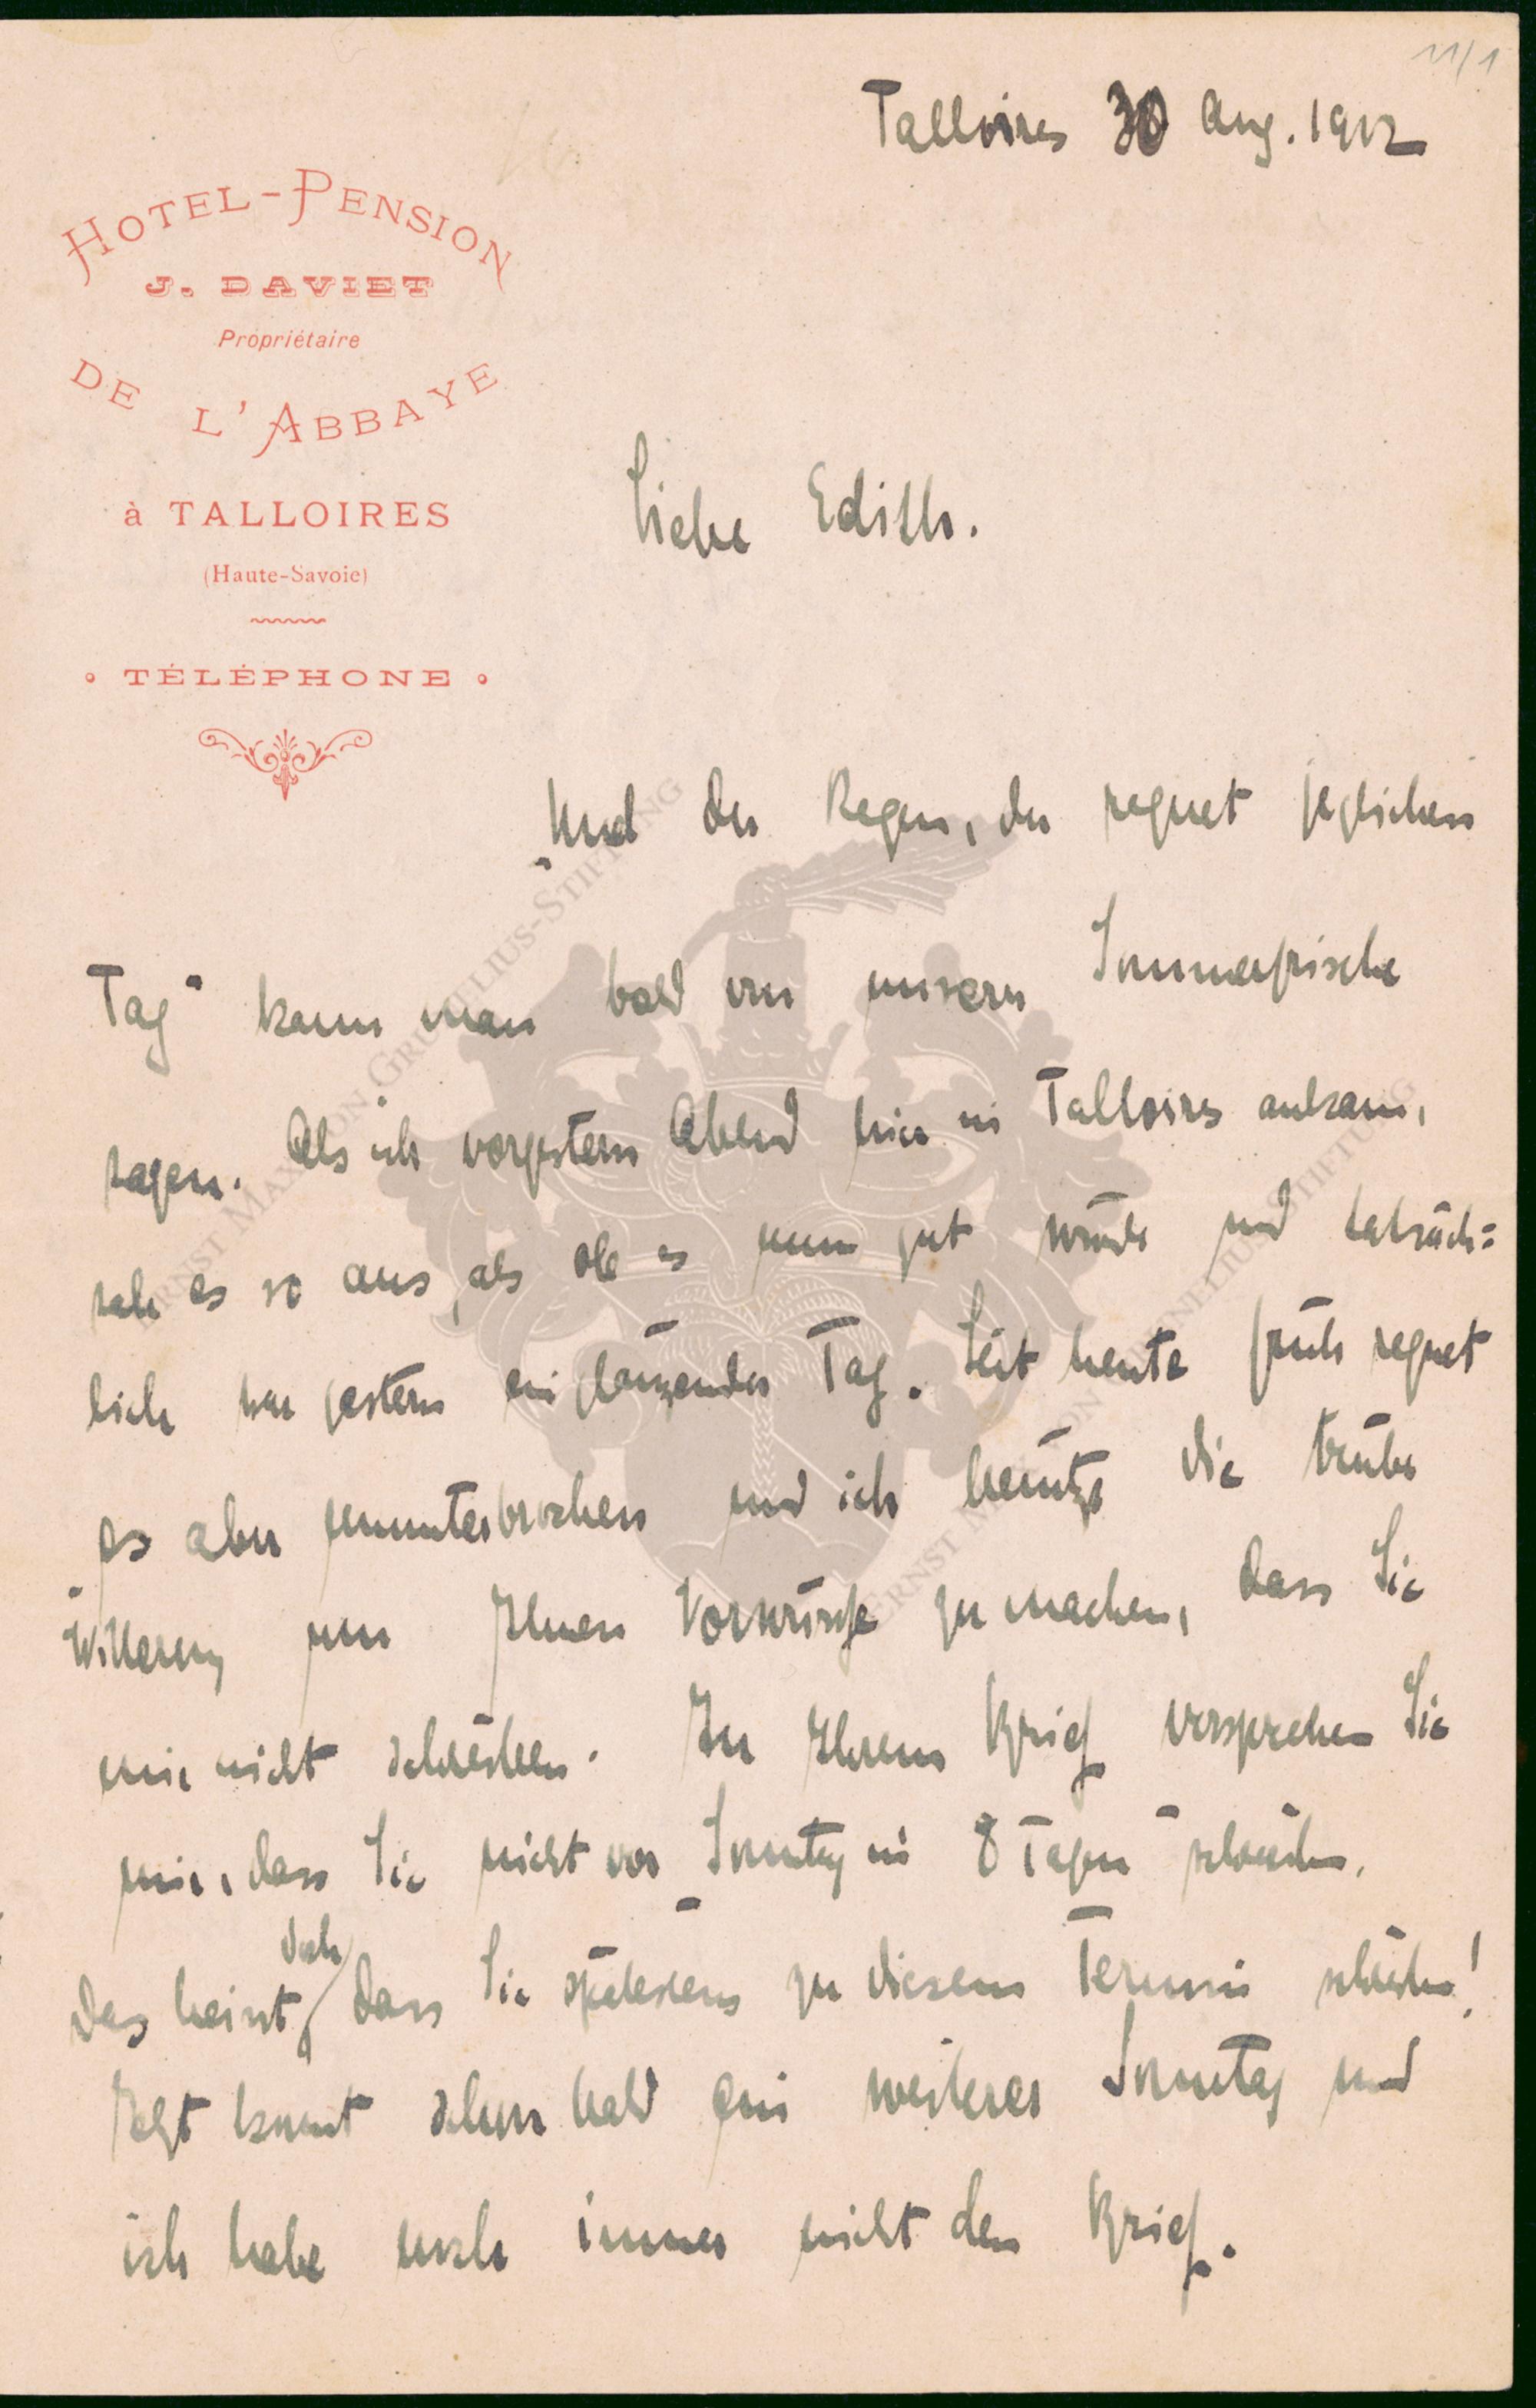 11/1
Talloires 30 Aug. 1912
HOTEL-PENSION
J. DAVIET
Propriétaire
DE L'ABBAYE
à TALLOIRES
(Haute-Savoie)
• TÉLÉPHONE •
Liebe Edith.
„Und der Regen, der regnet jeglichen
Tag“ kann man bald von unserer Sommerfrische
sagen. Als ich vorgestern Abend hier in Talloires ankam,
sah es so aus, als ob es nun gut würde und tatsäch=
lich war gestern ein glänzender Tag. Seit heute früh regnet
es aber ununterbrochen und ich benütze die trübe
Witterung um Ihnen Vorwürfe zu machen, dass Sie
mir nicht schreiben. In Ihrem Brief versprechen Sie
mir, dass Sie nicht vor Sonntag in 8 Tagen schreiben.
doch
Das heisst, dass Sie spätestens zu diesem Termin schreiben!
Jetzt kommt schon bald ein weiterer Sonntag und
ich habe noch immer nicht den Brief.
ERNST MAX VON GRUNELIUS-STIFTUNG
ERNST MAX VON GRUNELIUS-STIFTUNG